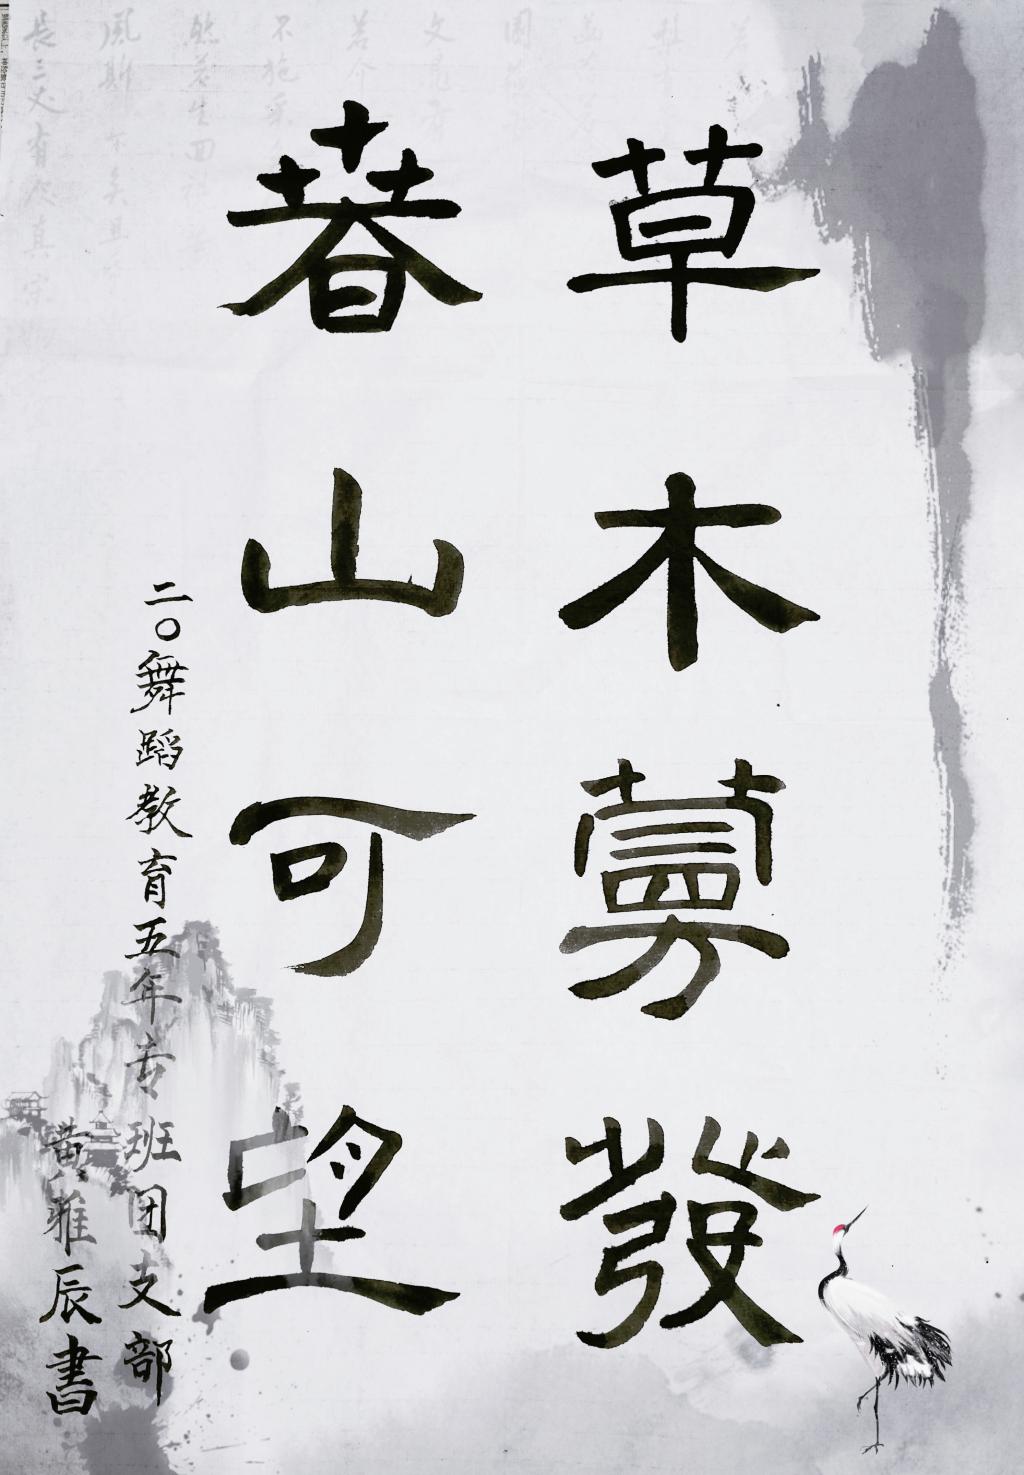 草木蔓發
春山可望
二〇舞蹈教育五年专班团支部
黄雅辰書